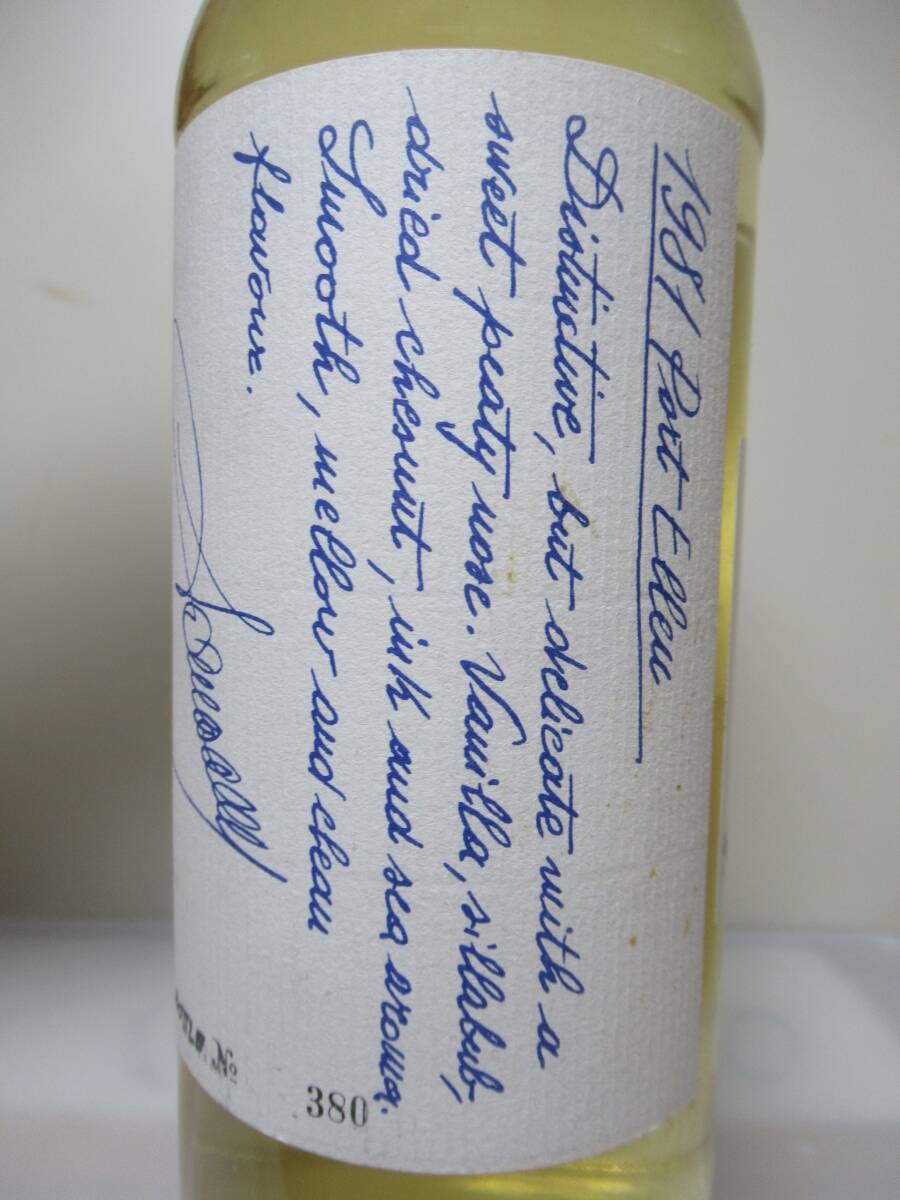 1981 Port Ellen
Distinctive, but delicate with a
sweet peaty nose. Vanilla, sillabub,
dried chesnut, ink and sea aroma.
Smooth, mellow and clean
flavour.
No
380